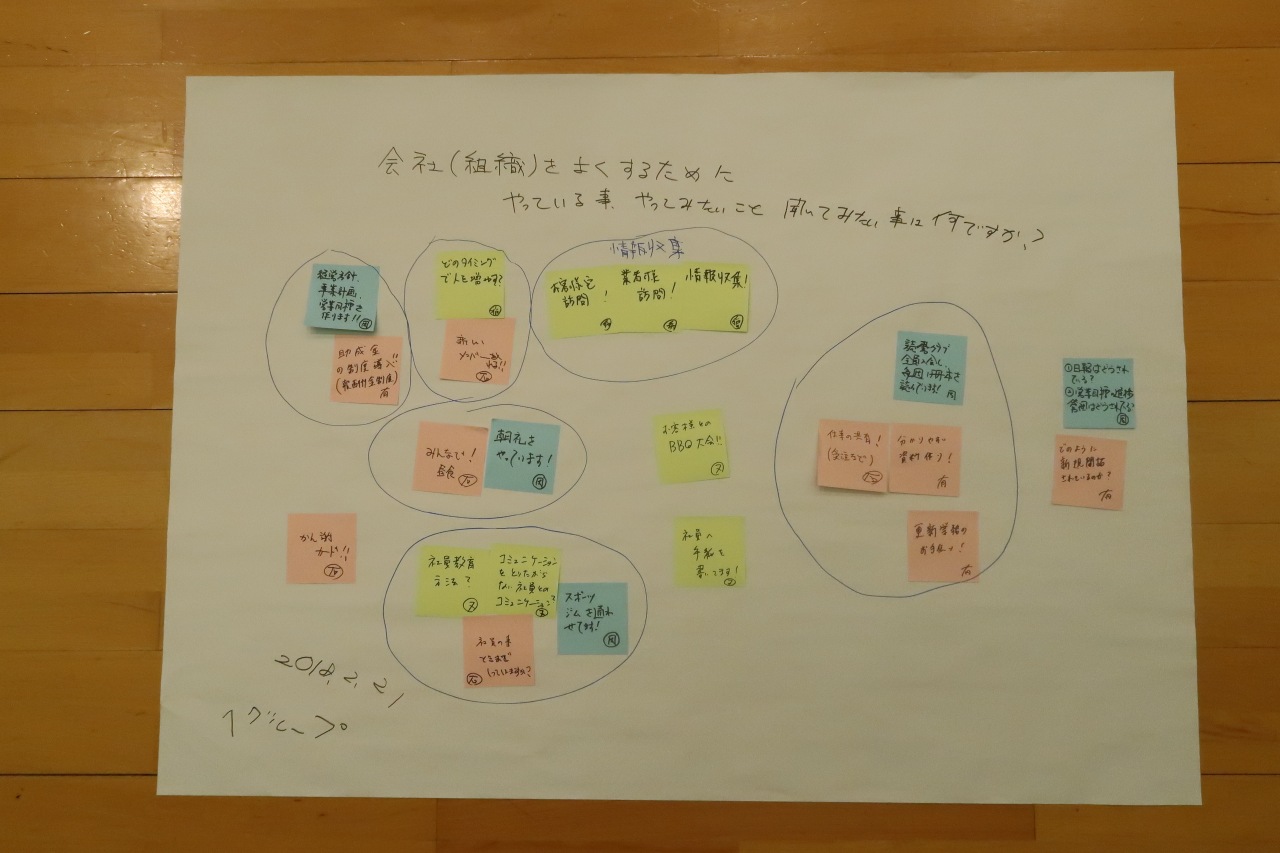 会社(組織)をよくするために
やっている事、やってみたいこと 聞いてみたい事は何ですか?
経営方針、
事業計画、
営業目標を
作ります!!
助成金
の制度導入!!
有
どのタイミング
で人を増やす?
新しい
メンバー
情報収集
お客様宅
訪問!
業者様
訪問!
情報収集!
みんなで!
昼食
朝礼を
やっています!
お客様との
BBQ大会!!
読書クラブ
全員入会し、
毎回1冊本を
読んでいます!
仕事の共有!
分かりやすい
資料作り!
有
お手伝い!
有
①日報はどうされ
ている?
②営業目標の進捗
管理はどうされてる?
どのように
新規開拓
されていますか?
有
かん謝
カード!!
社員教育
方法?
コミュニケーション
をとりたがら
ない社員との
コミュニケーション?
スポーツ
ジムを通わ
せてます!
社員の事
どこまで
しっていますか?
社員へ
手紙を
書いてます!
2018.2.21
1グループ